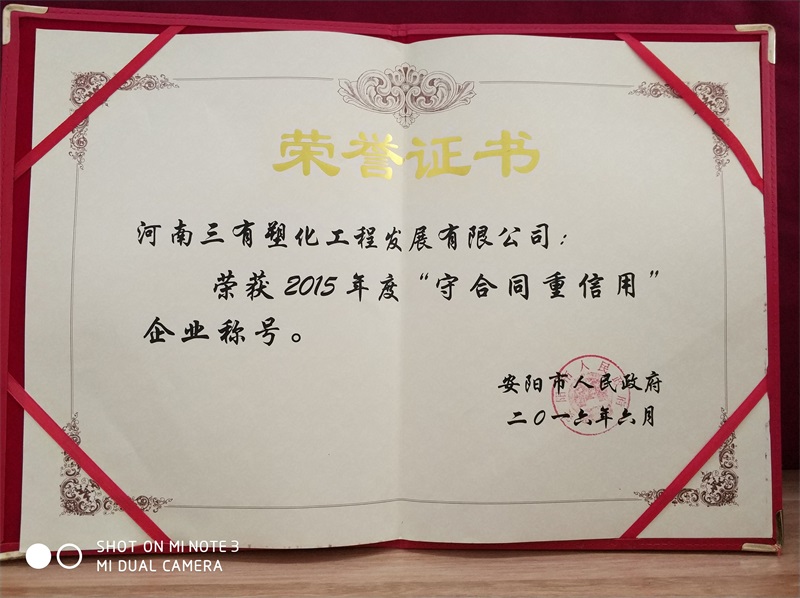 荣誉证书
河南三有塑化工程发展有限公司：
荣获2015年度“守合同重信用”
企业称号。
安阳市人民政府
二〇一六年六月
SHOT ON MI NOTE 3
MI DUAL CAMERA